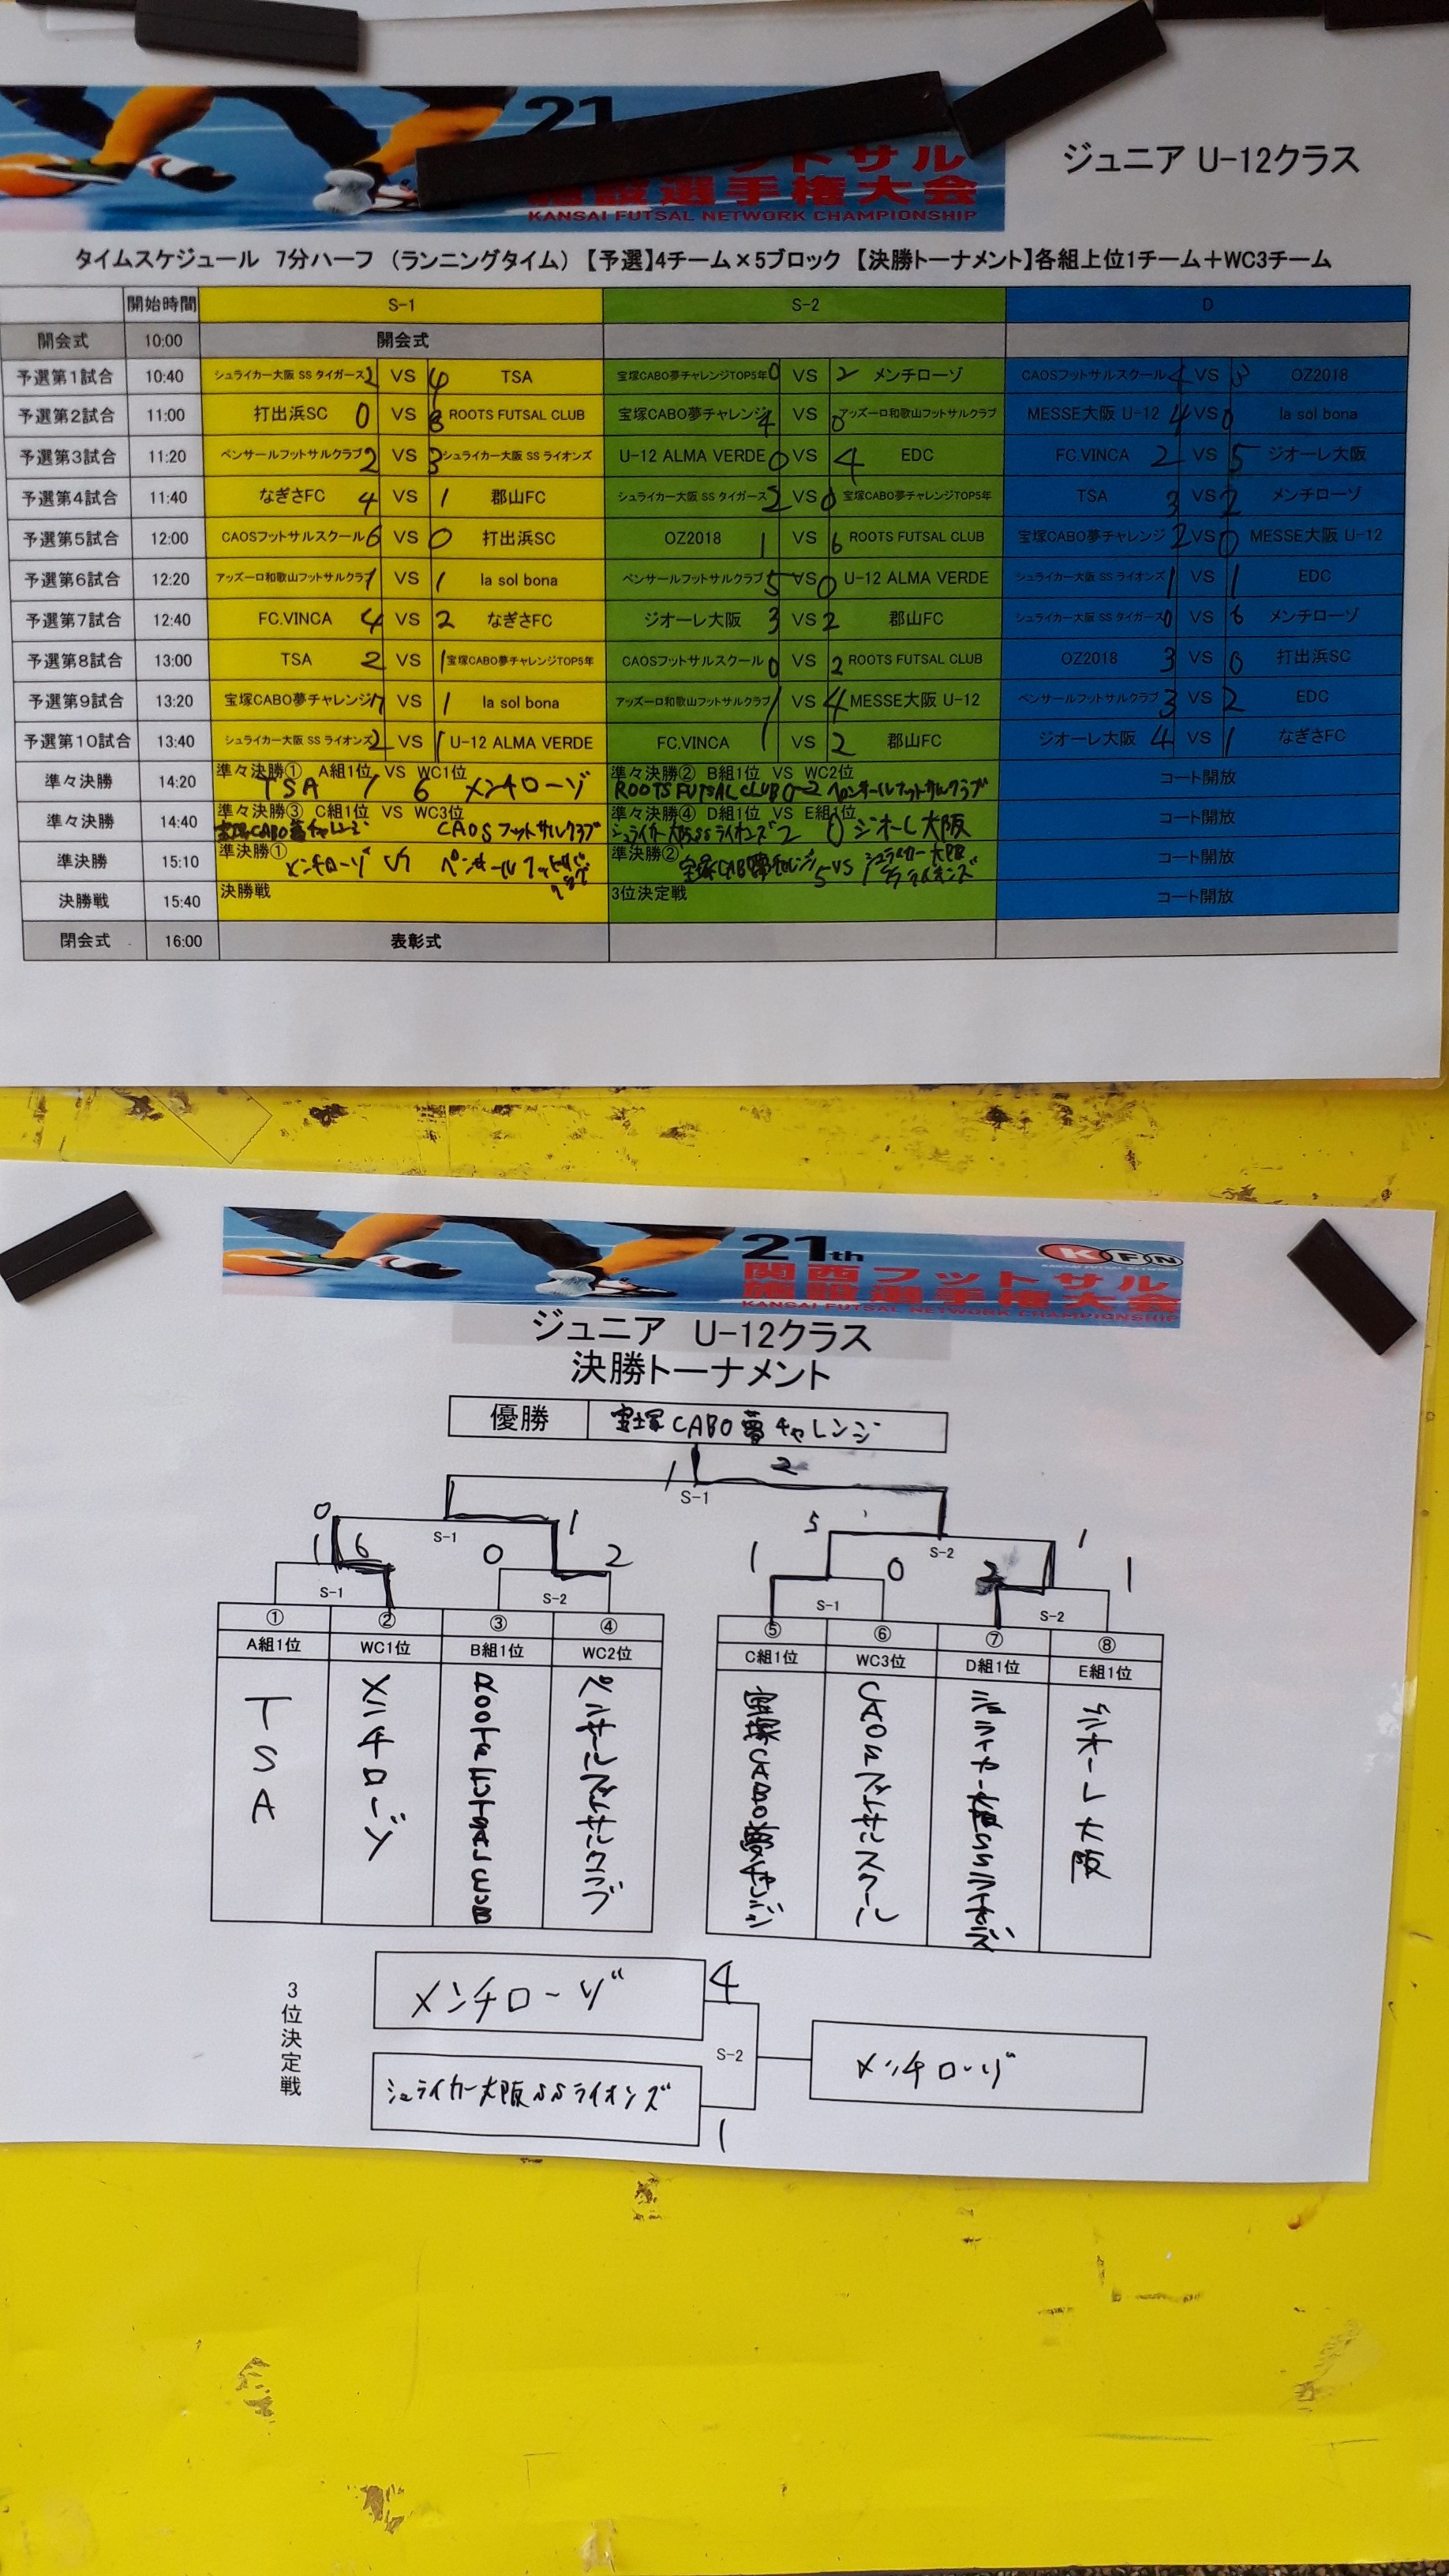 21
ットサル
施設選手権大会
KANSAI FUTSAL NETWORK CHAMPIONSHIP
ジュニア U-12クラス
タイムスケジュール 7分ハーフ (ランニングタイム) 【予選】4チーム×5ブロック 【決勝トーナメント】各組上位1チーム+WC3チーム
開始時間 S-1 S-2 D
開会式 10:00 開会式
予選第1試合 10:40 シュライカー大阪 SS タイガース 2 VS TSA 宝塚CABO夢チャレンジTOP5年 0 VS 2 メンチローゾ CAOSフットサルスクール 4 VS 3 OZ2018
予選第2試合 11:00 打出浜SC 0 VS 8 ROOTS FUTSAL CLUB 宝塚CABO夢チャレンジ 4 VS 0 アッズーロ和歌山フットサルクラブ MESSE大阪 U-12 4 VS 0 la sol bona
予選第3試合 11:20 ペンサールフットサルクラブ 2 VS 3 シュライカー大阪 SS ライオンズ U-12 ALMA VERDE 0 VS 4 EDC FC.VINCA 2 VS 5 ジオーレ大阪
予選第4試合 11:40 なぎさFC 4 VS 1 郡山FC シュライカー大阪 SS タイガース 2 VS 0 宝塚CABO夢チャレンジTOP5年 TSA 3 VS 2 メンチローゾ
予選第5試合 12:00 CAOSフットサルスクール 6 VS 0 打出浜SC OZ2018 1 VS 6 ROOTS FUTSAL CLUB 宝塚CABO夢チャレンジ 2 VS 0 MESSE大阪 U-12
予選第6試合 12:20 アッズーロ和歌山フットサルクラブ 1 VS 1 la sol bona ペンサールフットサルクラブ 5 VS 0 U-12 ALMA VERDE シュライカー大阪 SS ライオンズ 1 VS 1 EDC
予選第7試合 12:40 FC.VINCA 4 VS 2 なぎさFC ジオーレ大阪 3 VS 2 郡山FC シュライカー大阪 SS タイガース 0 VS 6 メンチローゾ
予選第8試合 13:00 TSA 2 VS 1 宝塚CABO夢チャレンジTOP5年 CAOSフットサルスクール 0 VS 2 ROOTS FUTSAL CLUB OZ2018 3 VS 0 打出浜SC
予選第9試合 13:20 宝塚CABO夢チャレンジ 7 VS 1 la sol bona アッズーロ和歌山フットサルクラブ 1 VS 4 MESSE大阪 U-12 ペンサールフットサルクラブ 3 VS 2 EDC
予選第10試合 13:40 シュライカー大阪 SS ライオンズ 2 VS 1 U-12 ALMA VERDE FC.VINCA 1 VS 2 郡山FC ジオーレ大阪 4 VS 1 なぎさFC
準々決勝 14:20 準々決勝① A組1位 VS WC1位 準々決勝② B組1位 VS WC2位 コート開放
TSA 1 6 メンチローゾ ROOTS FUTSAL CLUB 0-2 ペンサールフットサルクラブ
準々決勝 14:40 準々決勝③ C組1位 VS WC3位 準々決勝④ D組1位 VS E組1位 コート開放
宝塚CABO夢チャレンジ CAOSフットサルクラブ シュライカー大阪SSライオンズ 2 ジオーレ大阪
準決勝 15:10 準決勝① 準決勝② コート開放
メンチローゾ VS ペンサールフットサルクラブ 宝塚CABO夢チャレンジ 5 VS 1 シュライカー大阪 ライオンズ
決勝戦 15:40 決勝戦 3位決定戦 コート開放
閉会式 16:00 表彰式
21th KFN
関西フットサル
施設選手権大会
KANSAI FUTSAL NETWORK CHAMPIONSHIP
ジュニア U-12クラス
決勝トーナメント
優勝 宝塚CABO夢チャレンジ
1 S-1 2
0 S-1 1 5 S-2 1
1 6 0 2 1 0 2 1
S-1 S-2 S-1 S-2
① ② ③ ④ ⑤ ⑥ ⑦ ⑧
A組1位 WC1位 B組1位 WC2位 C組1位 WC3位 D組1位 E組1位
TSA
メンチローゾ
Roots futsal club
ペンサールフットサルクラブ
宝塚CABO夢チャレンジ
CAOSフットサルスクール
シュライカー大阪SSライオンズ
ジオーレ大阪
3位決定戦
メンチローゾ 4
S-2 メンチローゾ
シュライカー大阪SSライオンズ 1